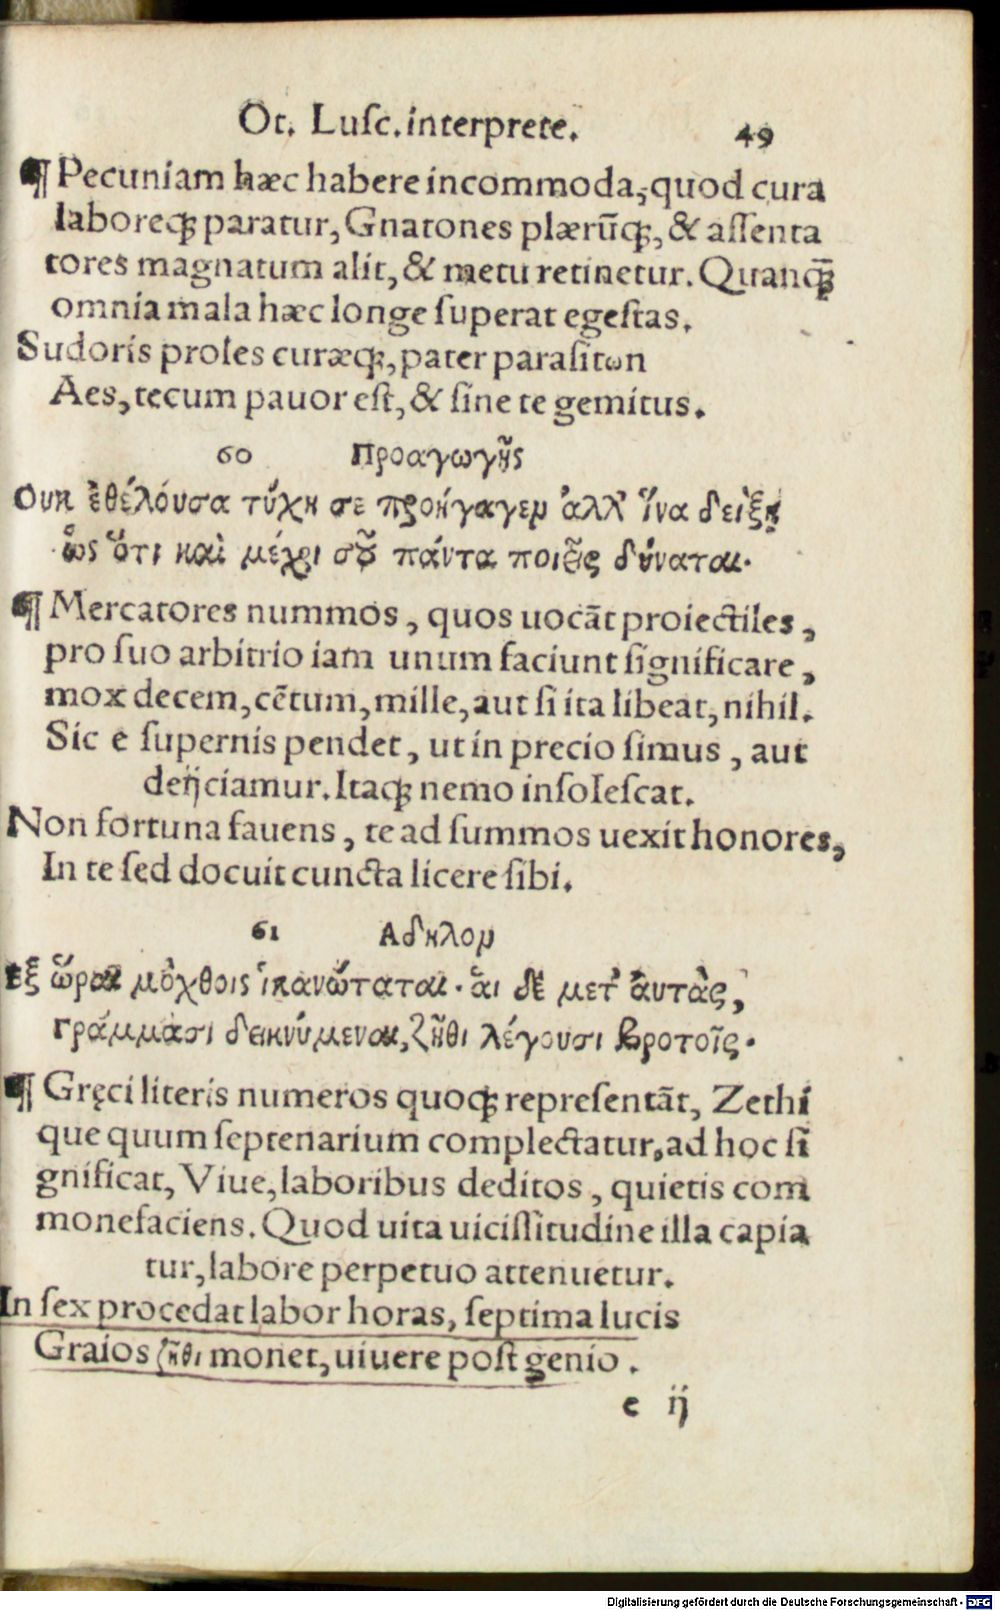 Ot. Lusc. interprete. 49
¶ Pecuniam hæc habere incommoda, quod cura
laboreq́ꝫ paratur, Gnatones plærũq́ꝫ, & assenta
tores magnatum alit, & metu retinetur. Quanq̃ꝫ
omnia mala hæc longe superat egestas.
Sudoris proles curæq́ꝫ, pater parasitων
Aes, tecum pauor est, & sine te gemitus.
60 Προαγωγῆς
Ουκ ἐθέλουσα τύχη σε προήγαγεν ἀλλ' ἵνα δείξῃ
ὡς ὅτι καὶ μέχρι σοῦ πάντα ποιεῖν δύναται.
¶ Mercatores nummos, quos uocãt proiectiles,
pro suo arbitrio iam unum faciunt significare,
mox decem, cẽtum, mille, aut si ita libeat, nihil.
Sic e supernis pendet, ut in precio simus, aut
deijciamur. Itaq́ꝫ nemo insolescat.
Non fortuna fauens, te ad summos uexit honores,
In te sed docuit cuncta licere sibi.
61 Αδηλον
Εξ ὧραι μόχθοις ἱκανώταται. αἱ δὲ μετ' αὐτὰς,
γράμμασι δεικνύμεναι, ζῆθι λέγουσι βροτοῖς.
¶ Gręci literis numeros quoq́ꝫ repræsentãt, Zethi
que quum septenarium complectatur, ad hoc si
gnificat, Viue, laboribus deditos, quietis com
monefaciens. Quod uita uicissitudine illa capia
tur, labore perpetuo attenuetur.
In sex procedat labor horas, septima lucis
Graios ζῆθι monet, uiuere post genio.
e ij
Digitalisierung gefördert durch die Deutsche Forschungsgemeinschaft - DFG